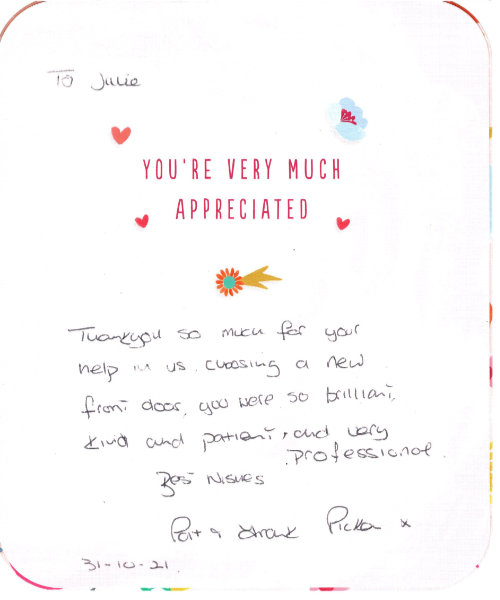 To Julie
YOU'RE VERY MUCH
APPRECIATED
Thankyou so much for your
help in us choosing a new
front door, you were so brilliant,
kind and patient, and very
professional.
Best Wishes
Pat &
x
31-10-21.